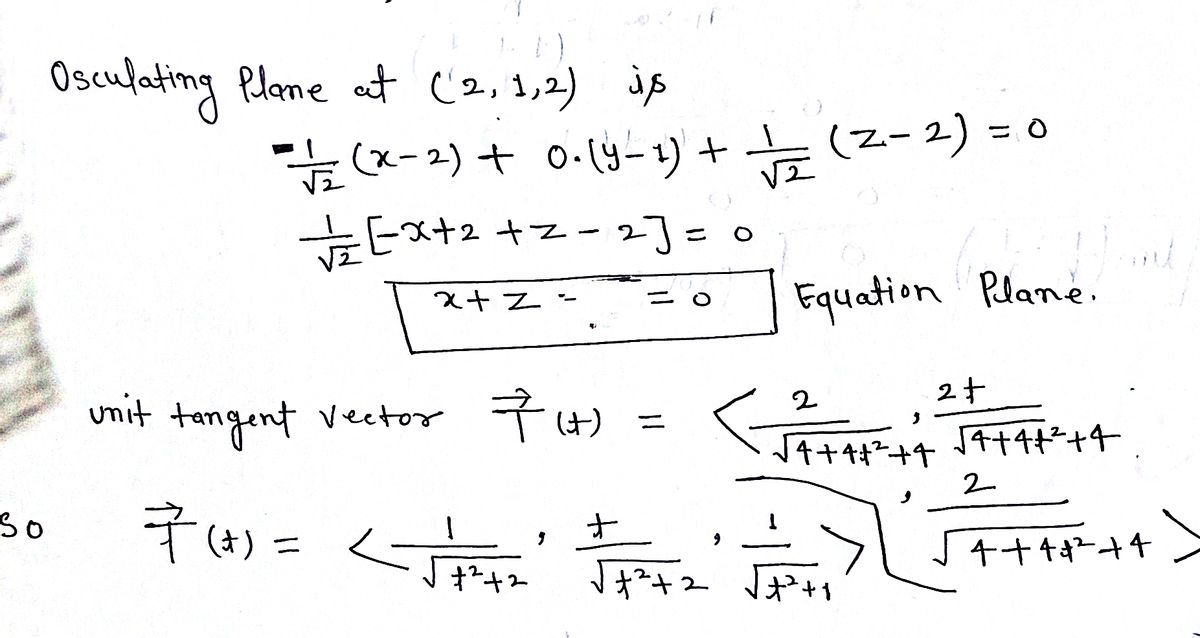 Osculating Plane at (2, 1, 2) is
-1/√2 (x-2) + 0.(y-1) + 1/√2 (z-2) = 0
1/√2 [-x+2 +z-2] = 0
x+z - = 0 Equation Plane.
unit tangent vector T⃗(t) = < 2/√4+4t²+4 , 2t/√4+4t²+4
, 2/√4+4t²+4 >
so T⃗(t) = < 1/√t²+2 , t/√t²+2 , 1/√t²+1 >